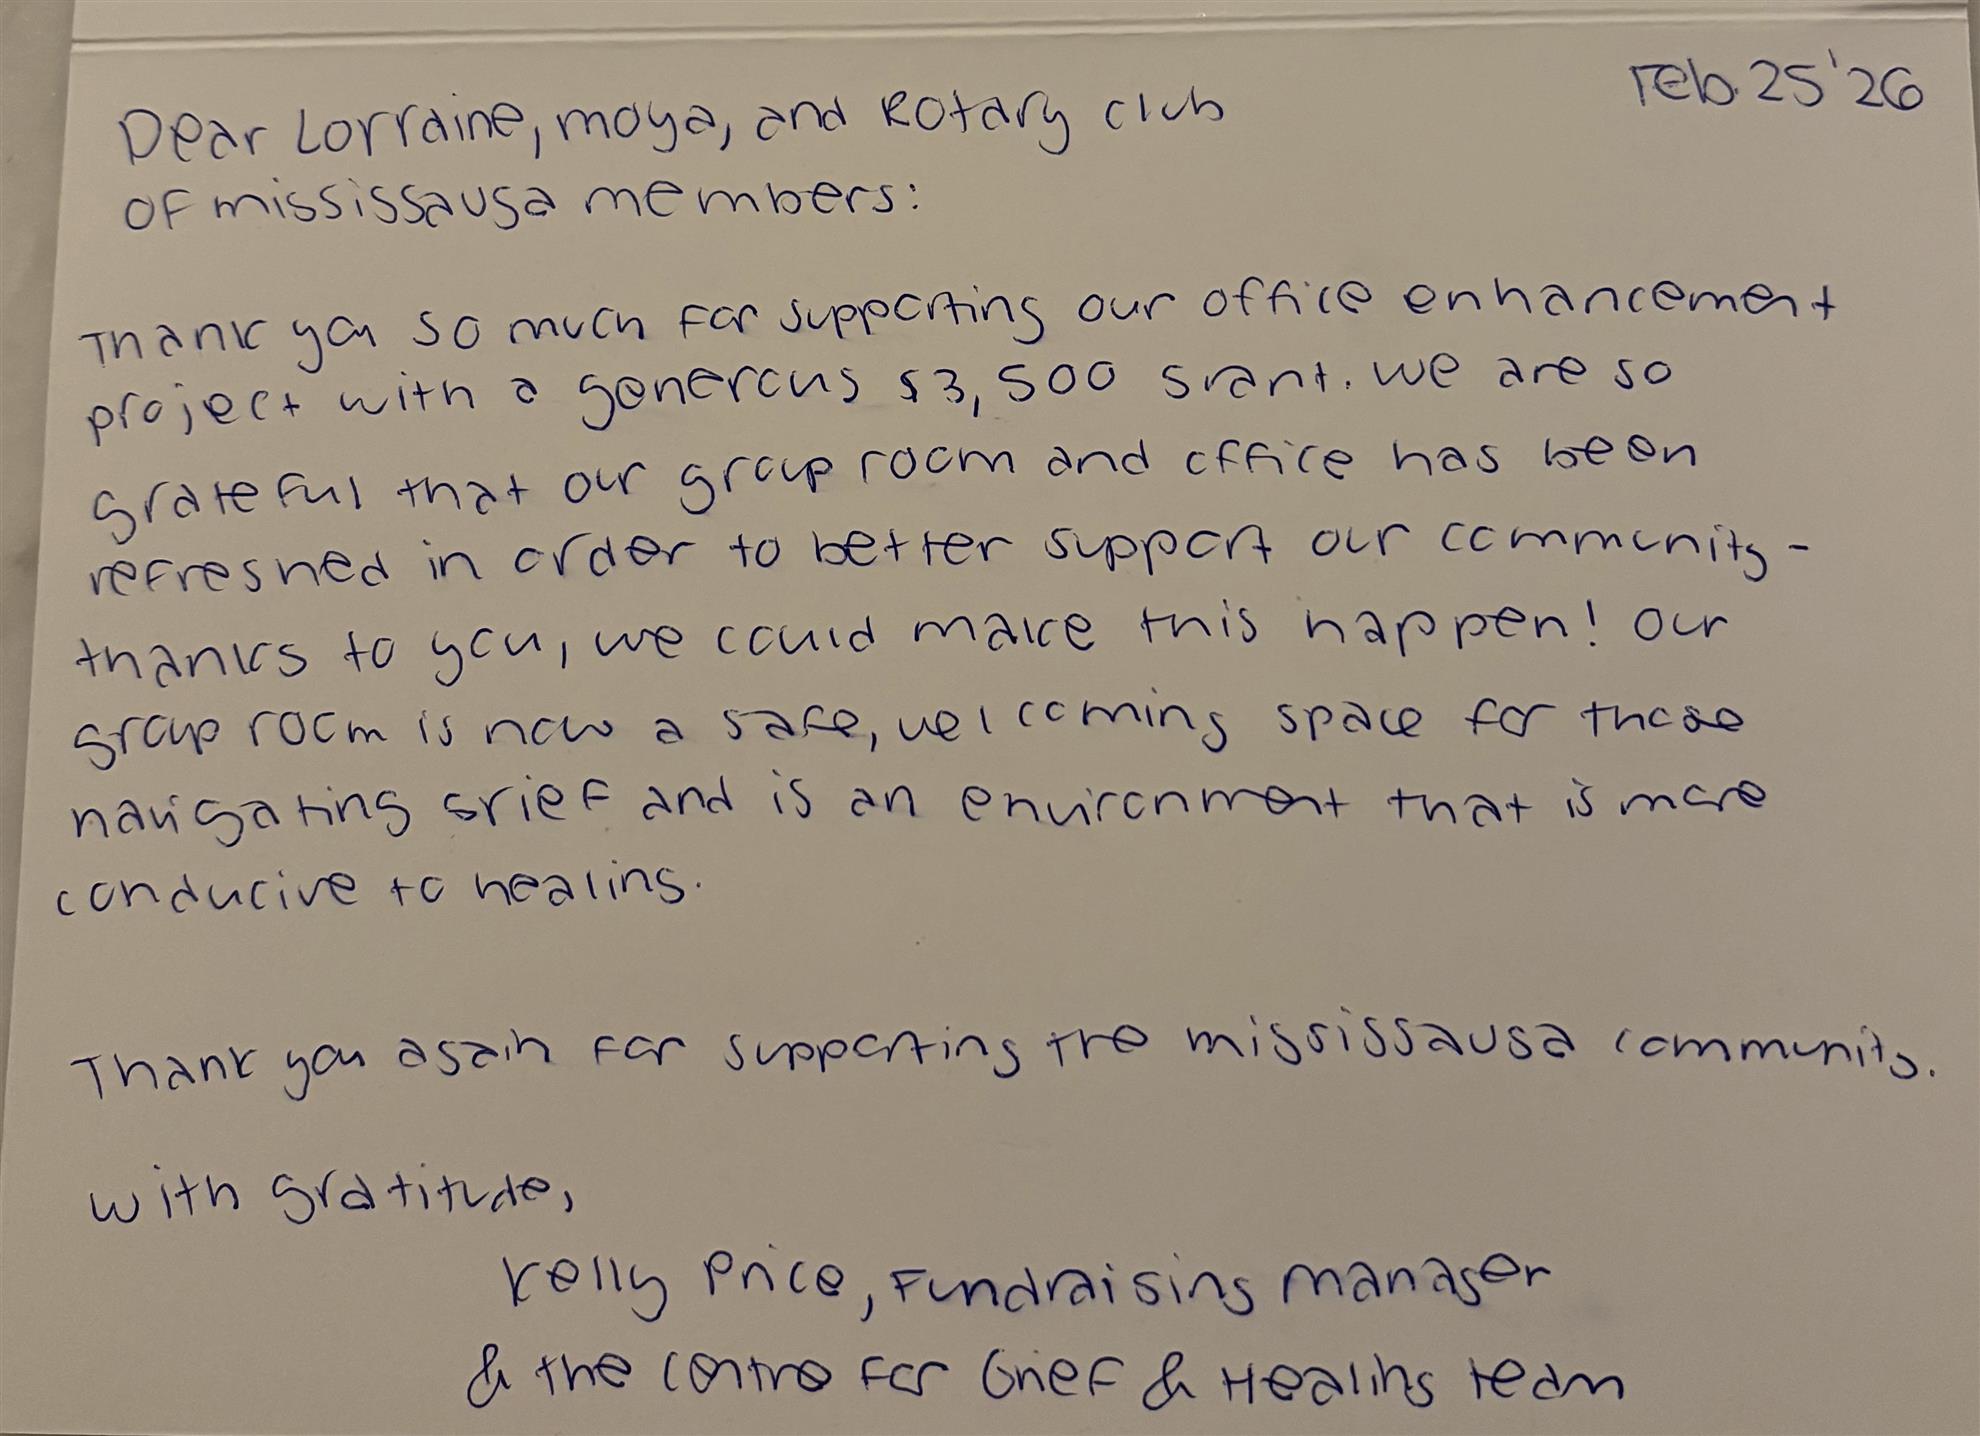 Feb. 25 '26
Dear Lorraine, Moya, and Rotary Club
of Mississauga members:
Thank you so much for supporting our office enhancement
project with a generous $3,500 grant. We are so
grateful that our group room and office has been
refreshed in order to better support our community -
thanks to you, we could make this happen! Our
group room is now a safe, welcoming space for those
navigating grief and is an environment that is more
conducive to healing.
Thank you again for supporting the Mississauga community.
With gratitude,
Kelly Price, Fundraising Manager
& the Centre for Grief & Healing team